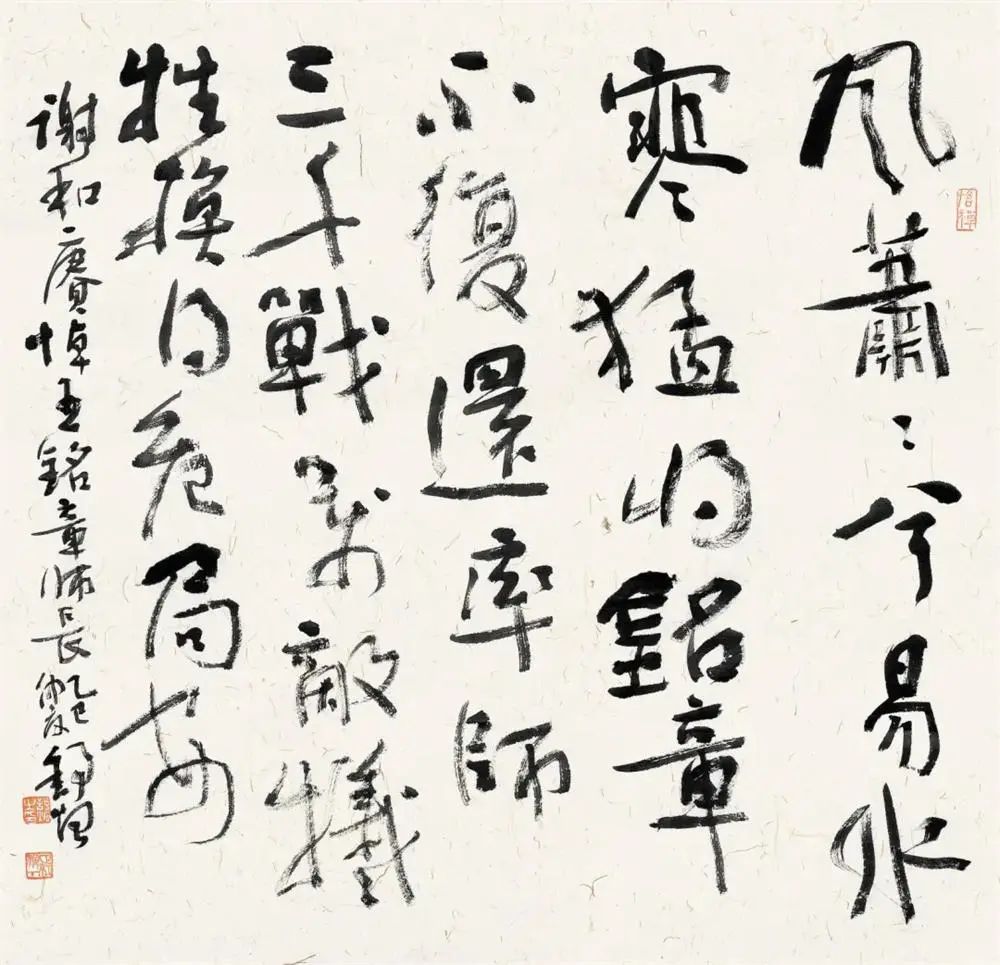 风蕭〻兮易水
寒猛將銘章
不復還率師
三千戰萬敵犧
牲換得危局安
謝和賡悼王銘章師長乙巳仲夏